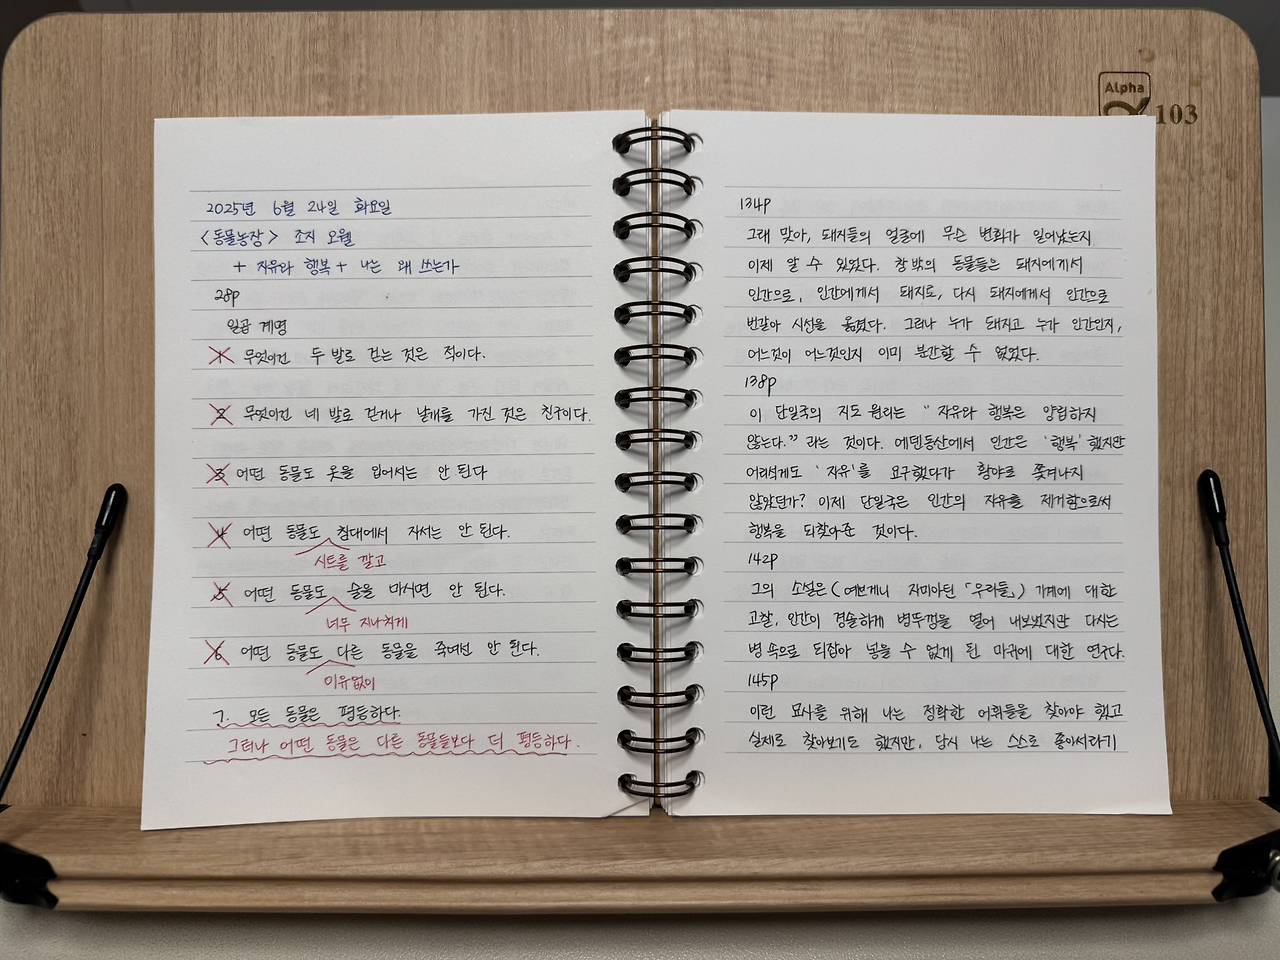 Alpha
103
2025년 6월 24일 화요일
<동물농장> 조지 오웰
+ 자유와 행복 + 나는 왜 쓰는가
28p
일곱 계명
1. 무엇이건 두 발로 걷는 것은 적이다.
2. 무엇이건 네 발로 걷거나 날개를 가진 것은 친구이다.
3. 어떤 동물도 옷을 입어서는 안 된다
4. 어떤 동물도 침대에서 자서는 안 된다.
시트를 깔고
5. 어떤 동물도 술을 마시면 안 된다.
너무 지나치게
6. 어떤 동물도 다른 동물을 죽여선 안 된다.
이유없이
7. 모든 동물은 평등하다.
그러나 어떤 동물은 다른 동물들보다 더 평등하다.
134p
그래 맞아, 돼지들의 얼굴에 무슨 변화가 일어났는지
이제 알 수 있었다. 창 밖의 동물들은 돼지에게서
인간으로, 인간에게서 돼지로, 다시 돼지에게서 인간으로
번갈아 시선을 옮겼다. 그러나 누가 돼지고 누가 인간인지,
어느것이 어느것인지 이미 분간할 수 없었다.
138p
이 단일국의 지도 원리는 "자유와 행복은 양립하지
않는다." 라는 것이다. 에덴동산에서 인간은 '행복' 했지만
어리석게도 '자유'를 요구했다가 황야로 쫓겨나지
않았던가? 이제 단일국은 인간의 자유를 제거함으로써
행복을 되찾아준 것이다.
142p
그의 소설은(예브게니 자미아틴 「우리들」) 기계에 대한
고찰, 인간이 경솔하게 병뚜껑을 열어 내보냈지만 다시는
병 속으로 되잡아 넣을 수 없게 된 마귀에 대한 연구다.
145p
이런 묘사를 위해 나는 정확한 어휘들을 찾아야 했고
실제로 찾아보기도 했지만, 당시 나는 스스로 좋아서라기